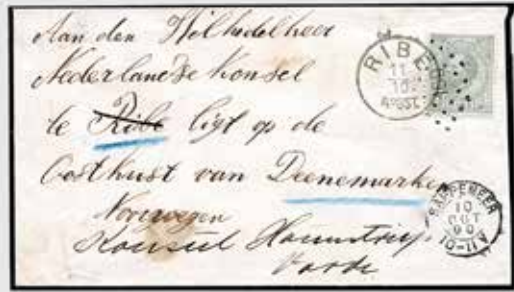 Aan den
Nederlandse Konsel
te Ribe ligt op de
Oostkust van Deenemarken
Norwegen
Konsul
Varde
RIBE
11
10
SAPPEMEER
10
OCT
90
10-11V